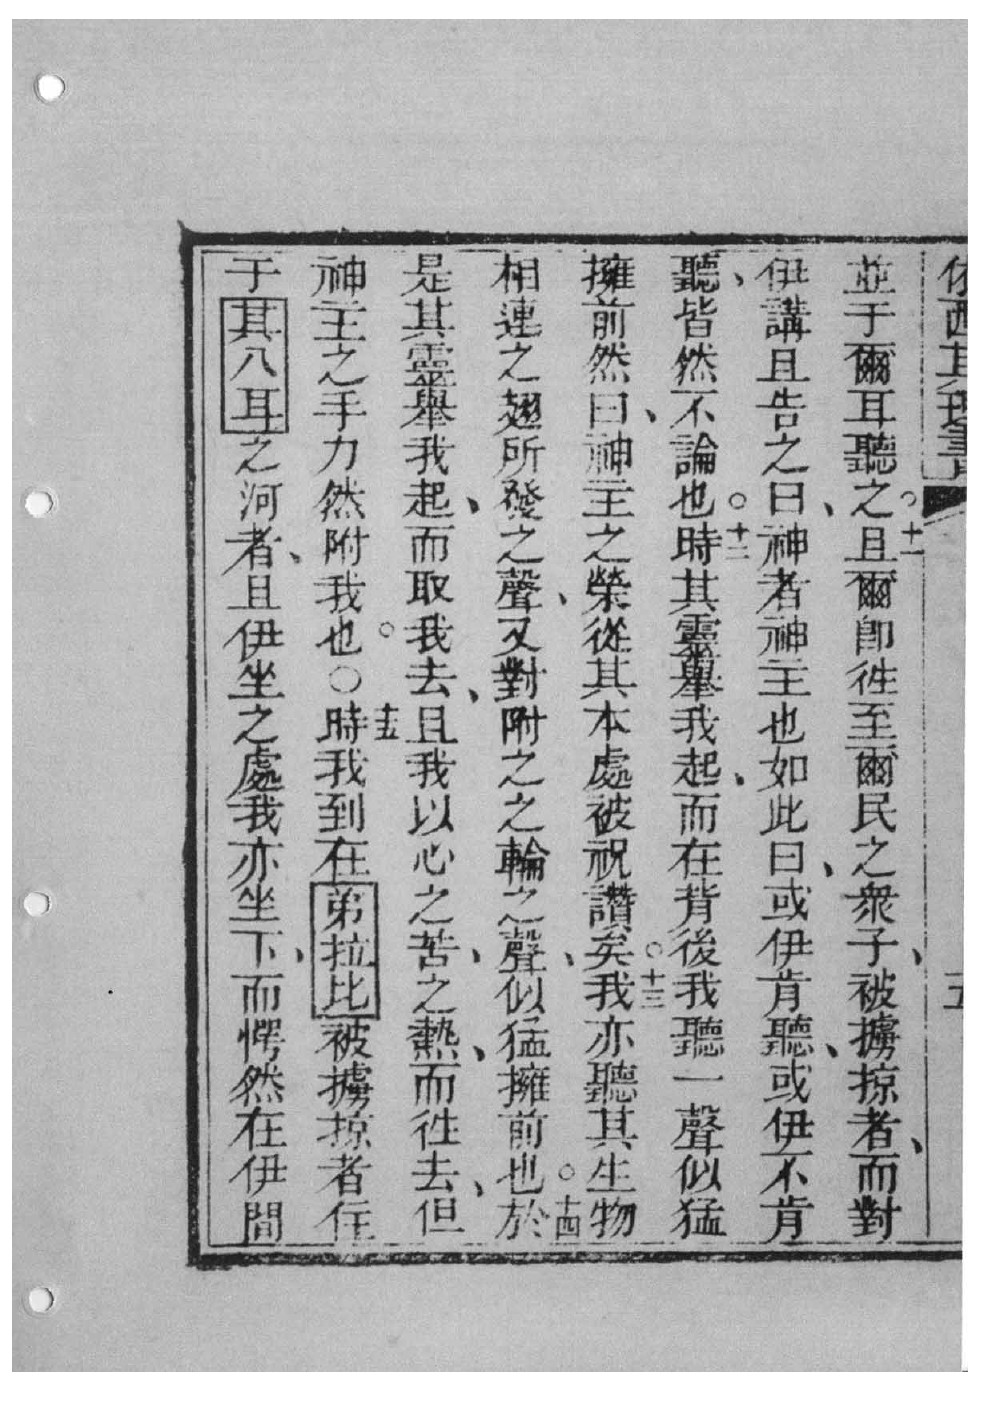 依西其理書 五
並于爾耳聽之。十一且爾卽徃至爾民之衆子、被擄掠者、而對
伊講且告之曰、神者神主也如此曰、或伊肯聽、或伊不肯
聽、皆然不論也。十二時其靈舉我起、而在背後我聽一聲似猛
擁前然曰、神主之榮從其本處被祝讚矣。十三我亦聽其生物
相連之翅所發之聲、又對附之之輪之聲、似猛擁前也。十四於
是其靈舉我起、而取我去、且我以心之苦、之熱、而徃去、但
神主之手力然附我也。○十五時我到在弟拉比被擄掠者住
于其八耳之河者、且伊坐之處我亦坐下、而愕然在伊間